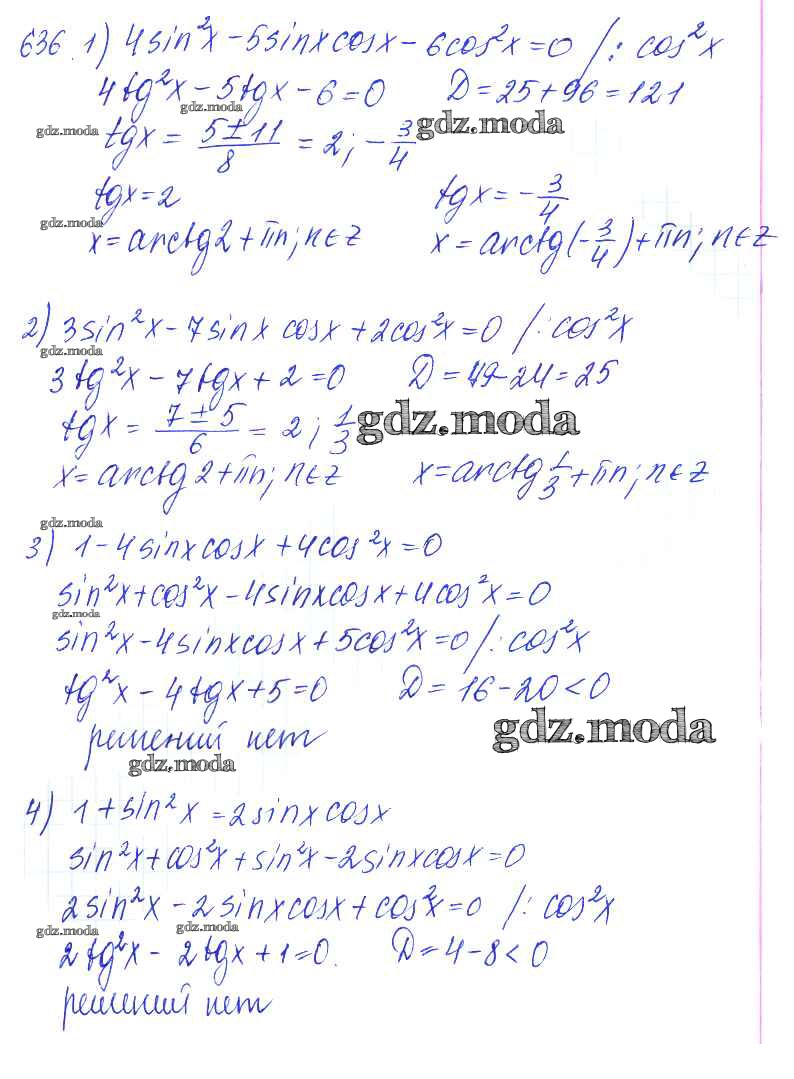 636. 1) 4sin²x - 5sinxcosx - 6cos²x = 0 /: cos²x
4tg²x - 5tgx - 6 = 0 D = 25 + 96 = 121
gdz.moda
gdz.moda tgx = (5 ± 11)/8 = 2; -3/4 gdz.moda
tgx = 2 tgx = -3/4
gdz.moda
x = arctg2 + πn; n∈Z x = arctg(-3/4) + πn; n∈Z
2) 3sin²x - 7sinx cosx + 2cos²x = 0 /: cos²x
gdz.moda
3tg²x - 7tgx + 2 = 0 D = 49 - 24 = 25
tgx = (7 ± 5)/6 = 2; 1/3 gdz.moda
x = arctg2 + πn; n∈Z x = arctg 1/3 + πn; n∈Z
gdz.moda
3) 1 - 4sinxcosx + 4cos²x = 0
sin²x + cos²x - 4sinxcosx + 4cos²x = 0
gdz.moda
sin²x - 4sinxcosx + 5cos²x = 0 /: cos²x
tg²x - 4tgx + 5 = 0 D = 16 - 20 < 0
решений нет gdz.moda
gdz.moda
4) 1 + sin²x = 2sinxcosx
sin²x + cos²x + sin²x - 2sinxcosx = 0
2sin²x - 2sinxcosx + cos²x = 0 /: cos²x
gdz.moda gdz.moda
2tg²x - 2tgx + 1 = 0. D = 4 - 8 < 0
решений нет